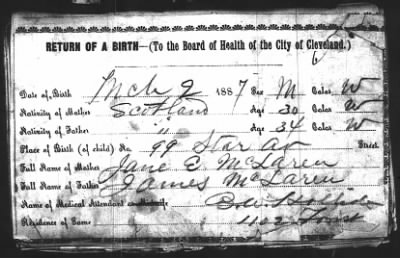 RETURN OF A BIRTH—(To the Board of Health of the City of Cleveland.)
Date of Birth Mch 2 1887 Sex M Color W
Nativity of Mother Scotland Age 30 Color W
Nativity of Father " Age 34 Color W
Place of Birth (of child) No. 99 Star av Street
Full Name of Mother Jane E McLaren
Full Name of Father James McLaren
Name of Medical Attendant or Midwife
Residence of Same